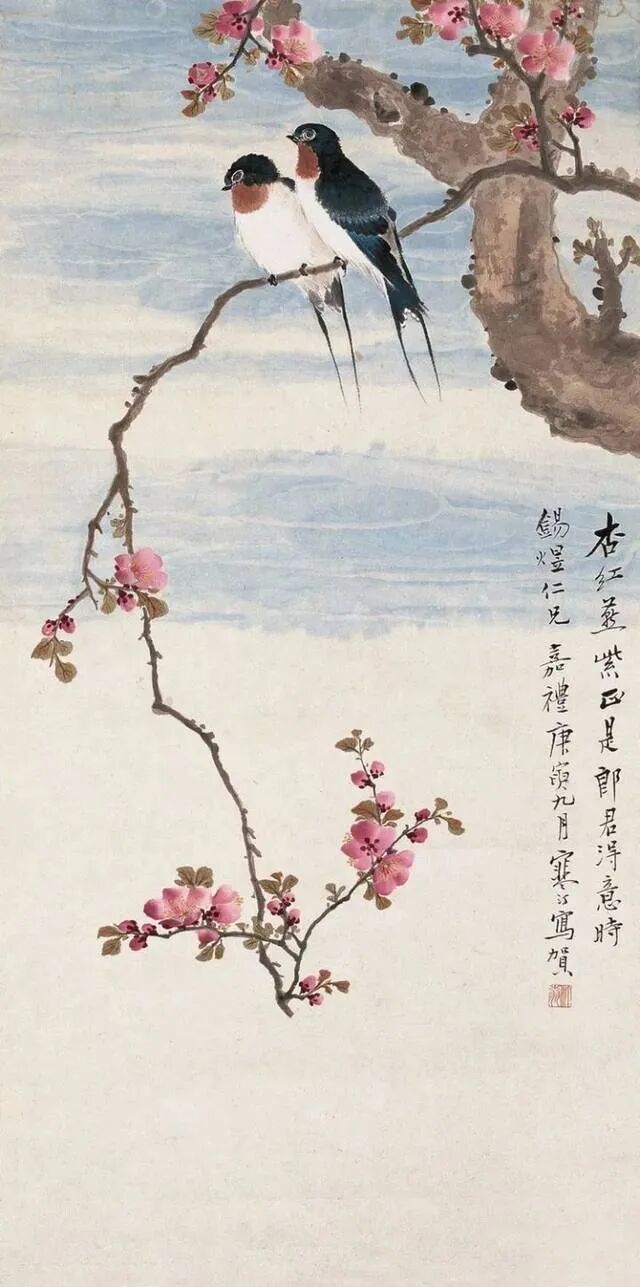 杏紅燕紫正是郎君得意時
錫煜仁兄嘉禮庚寅九月寒汀寫賀